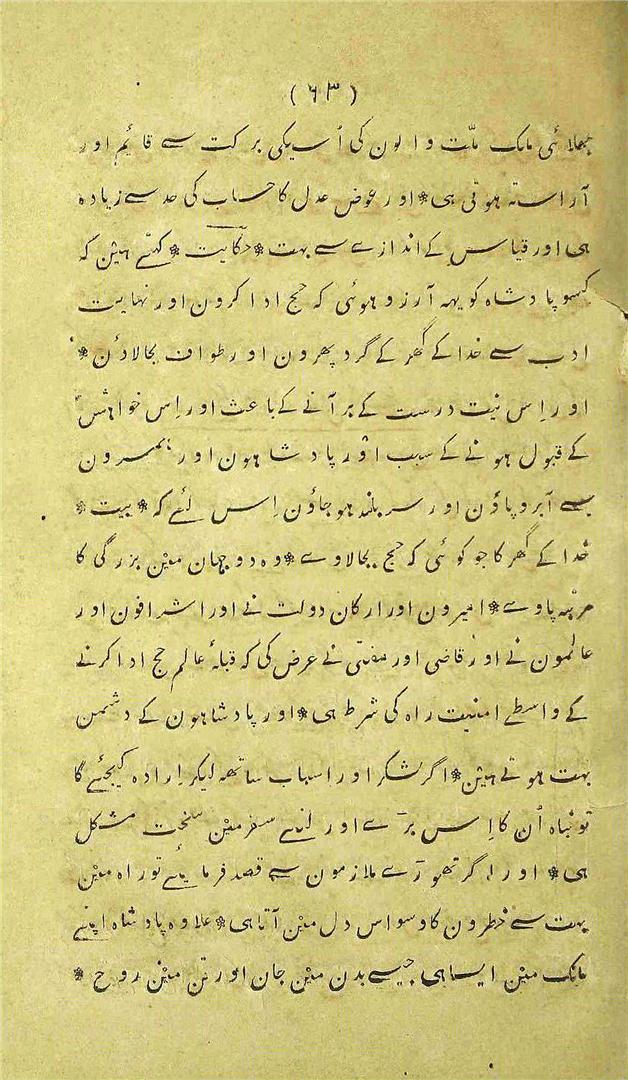 (۶۳)
بھلائی ملک ملّت والون کی اُسیکی برکت سے قایم اور
آراستہ ہوتی ہی * اور عوض عدل کا حساب کی حد سے زیادہ
ہی اور قیاس کے اندازے سے بہت * حکایت * کہتے ہین کہ
کسو پادشاہ کو یہہ آرزو ہوئی کہ حج ادا کرون اور نہایت
ادب سے خدا کے گھر کے گرد پھرون اور طواف بجا لاؤن *
اور اِس نیت درست کے بر آنے کے باعث اور اِس خواہش
کے قبول ہونے کے سبب اَور پادشاہون اور ہمسرون
سے آبرو پاؤن اور سر بلند ہو جاؤن اِس لئے کہ * بیت *
خدا کے گھر کا جو کوئی کہ حج بجا لاوے * وہ دو جہان مین بزرگی کا
مرتبہ پاوے * امیرون اور ارکان دولت نے اور اشرافون اور
عالمون نے اور قاضی اور مفتی نے عرض کی کہ قبلۂ عالم حج ادا کرنے
کے واسطے امنیت راہ کی شرط ہی * اور پادشاہون کے دشمن
بہت ہوتے ہین * اگر لشکر اور اسباب ساتھہ لیکر اِرادہ کیجئے گا
تو نباہ اُن کا اِس بڑے اور لنبے سفر مین سخت مشکل
ہی * اور اگر تھوڑے ملازمون سے قصد فرمایئے تو راہ مین
بہت سے خطرون کا وسواس دل مین آتا ہی * علاوہ پادشاہ اپنے
ملک مین ایسا ہی جیسے بدن مین جان اور تن مین روح *